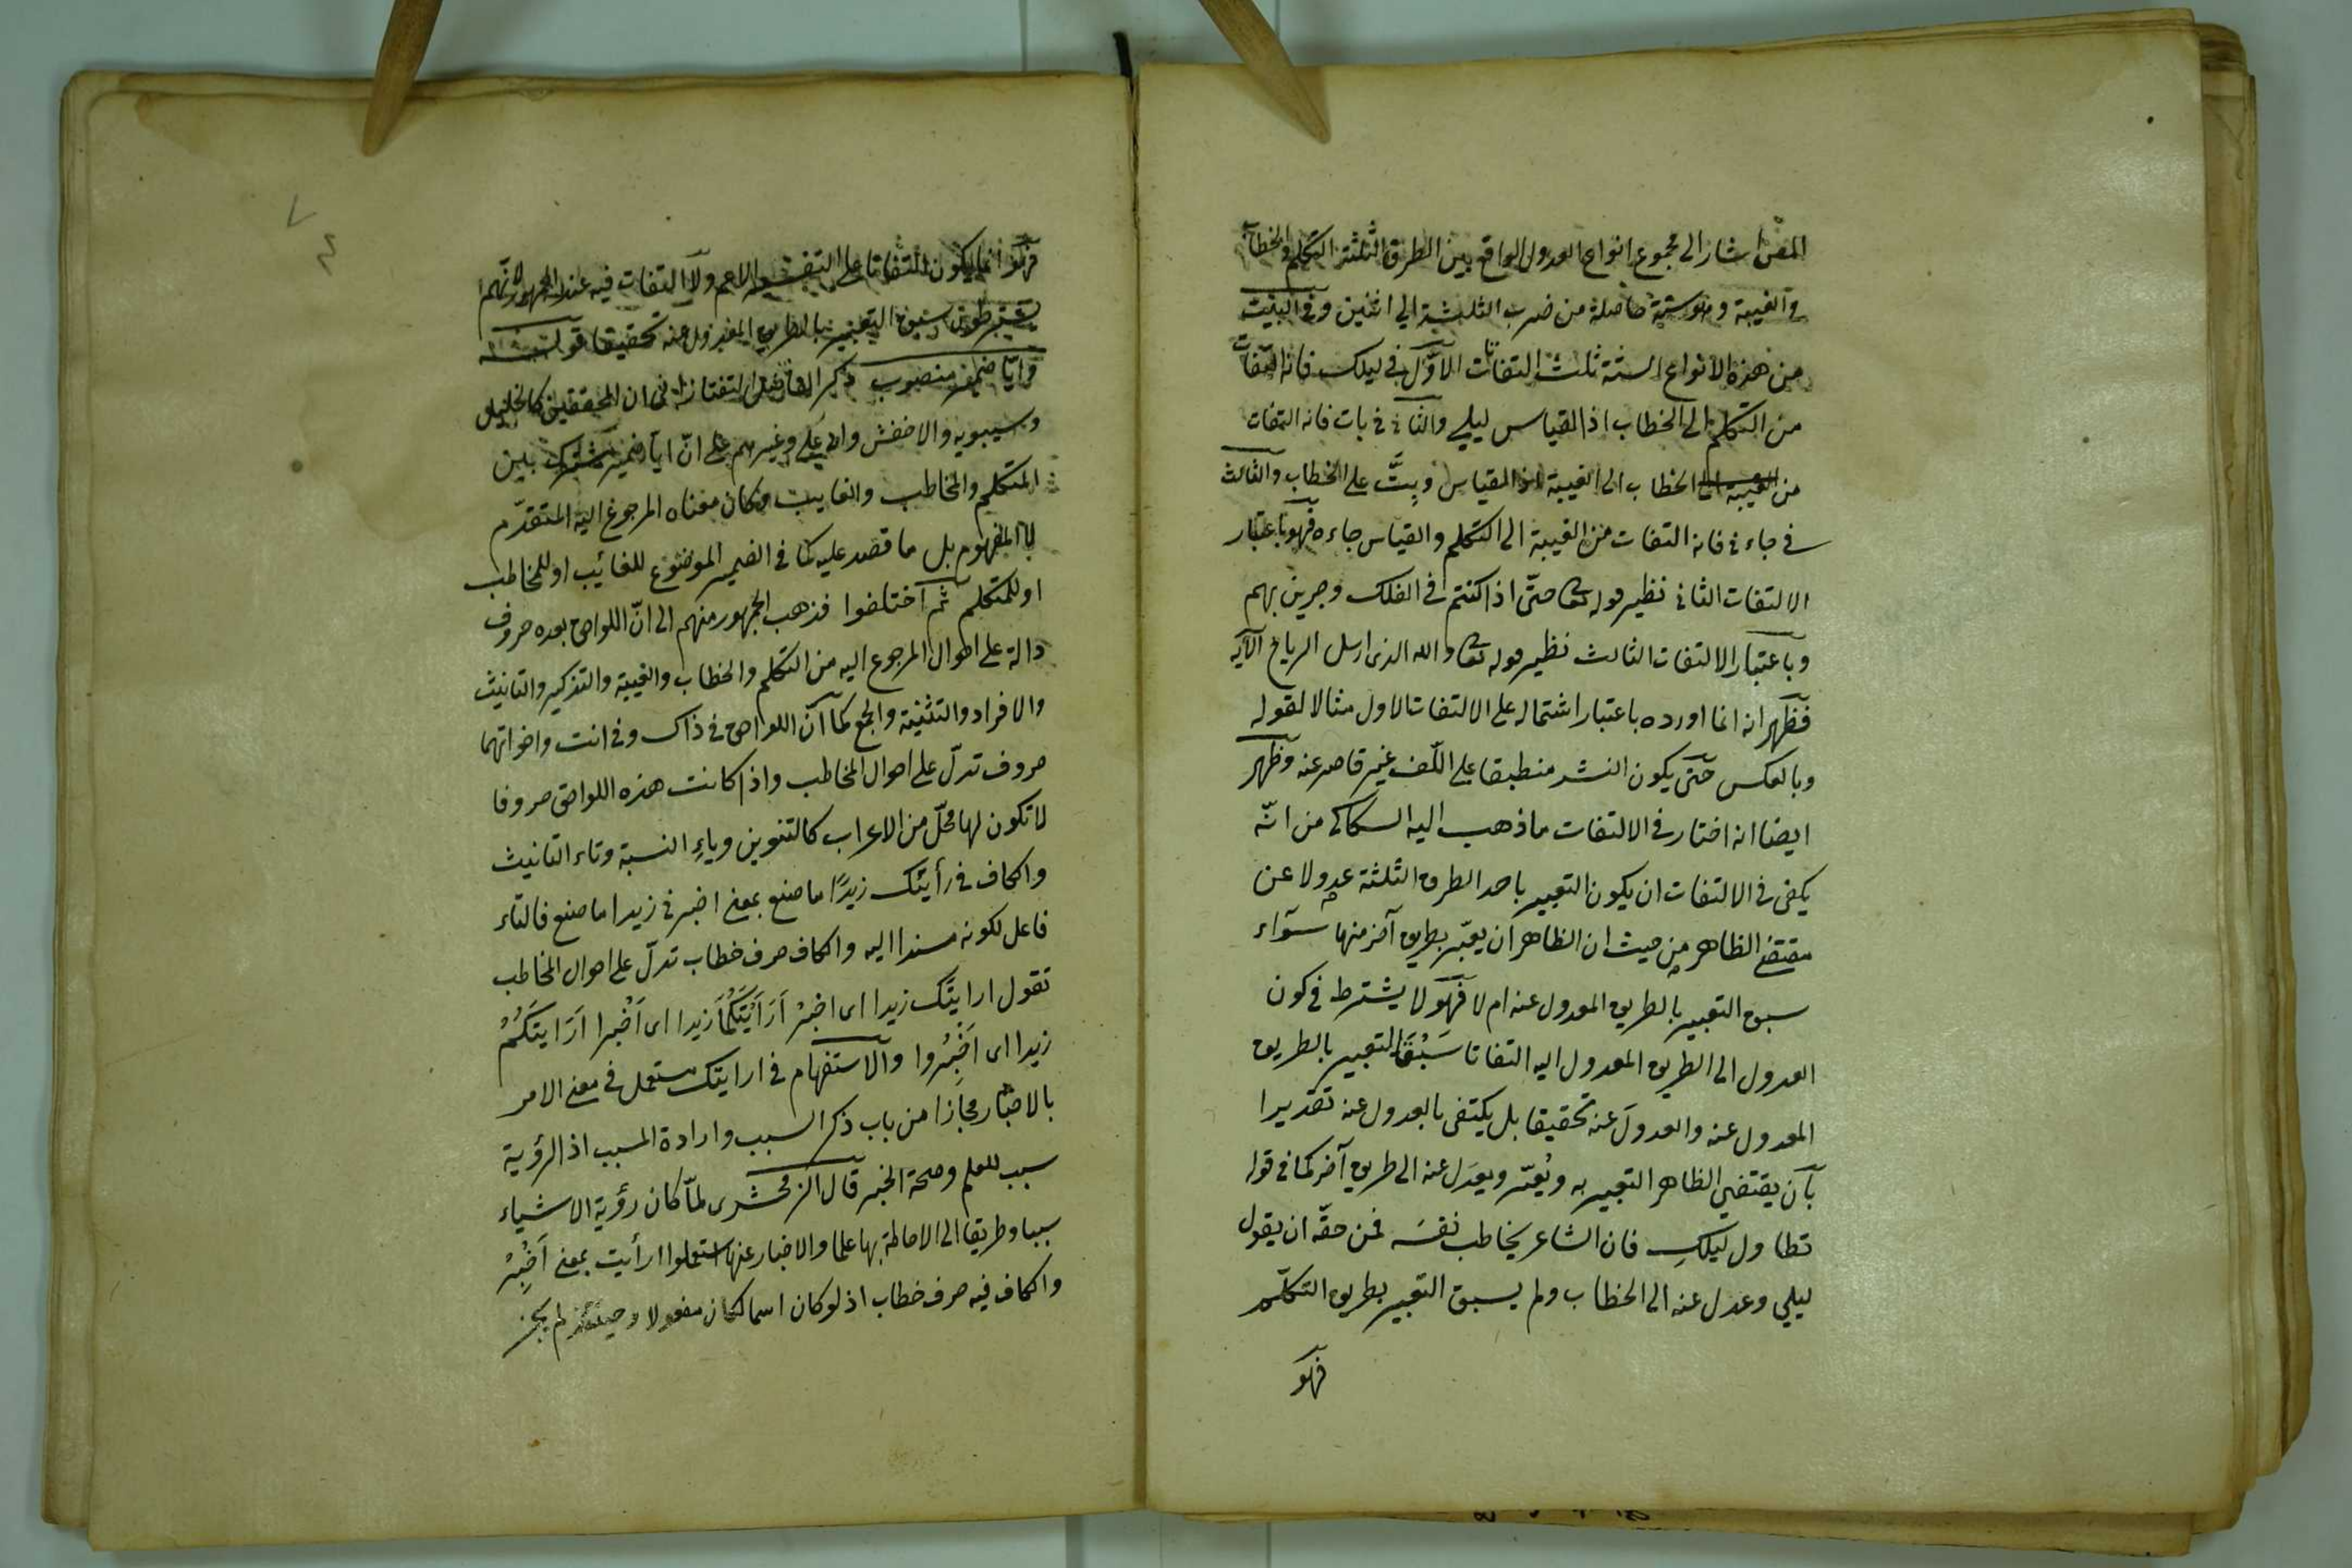 المص اشار الى مجموع انواع العدول الواقع بين الطرق الثلثة التكلم والخطاب
والغيبة وهو ستة حاصلة من ضرب الثلثة الى اثنين وفى البيت
من هذه الانواع الستة ثلث التفاتات الاوّل فى ليلك فانه التفات
من التكلم الى الخطاب اذ القياس ليلي والثانى فى بات فانه التفات
من الخطاب الى الغيبة اذ القياس وبِتَّ على الخطاب والثالث
فى جاءنى فانه التفات من الغيبة الى التكلم والقياس جاءه فهو باعتبار
الالتفات الثانى نظير قوله تعا حتّى اذا كنتم فى الفلك وجرين بهم
وباعتبار الالتفات الثالث نظير قوله تعا والله الذى ارسل الرياح الآية
فظهر انه انما اورده باعتبار اشتماله على الالتفات الاول مثالا لقوله
وبالعكس حتى يكون النشر منطبقا على اللّف غير قاصر عنه وظهر
ايضا انه اختار فى الالتفات ما ذهب اليه السكاكى من انّه
يكفى فى الالتفات ان يكون التعبير باحد الطرق الثلثة عدولا عن
مقتضى الظاهر من حيث ان الظاهر ان يعبّر بطريق آخر منها سوآء
سبق التعبير بالطريق المعدول عنه ام لا فهو لا يشترط فى كون
العدول الى الطريق المعدول اليه التفاتا سَبْقَ التعبير بالطريق
المعدول عنه والعدولَ عنه تحقيقا بل يكتفى بالعدول عنه تقديرا
بآن يقتضي الظاهر التعبير به ويُغيّر ويعدَل عنه الى طريق آخر كما فى قوله
تطاول ليلكِ فان الشاعر يخاطب نفسَه فمن حقّه ان يقول
ليلي وعدل عنه الى الخطاب ولم يسبق التعبير بطريق التكلّم
فهو
فهو انما يكون التفاتا على التفسير الاعم ولا التفات فيه عند الجمهور لانّهم
يشترطون سبق التعبير بالطريق المعدول عنه تحقيقا قوله
وايّا ضمير منصوب ذكر الفاضل التفتازانى ان المحققين كالخليل
وسيبويه والاخفش وابى على وغيرهم على انّ ايّا ضمير مشترك بين
المتكلم والمخاطب والغايب وكان معناه المرجوع اليه المتقدّم
لا المفهوم بل ما قصد عليه كما فى الضمير الموضوع للغائب او للمخاطب
او للمتكلم ثم اختلفوا فذهب الجمهور منهم الى انّ اللواحق بعده حروف
دالة على احوال المرجوع اليه من التكلم والخطاب والغيبة والتذكير والتانيث
والافراد والتثنية والجمع كما انّ اللواحق فى ذاك وفى انت واخواتهما
حروف تدلّ على احوال المخاطب واذا كانت هذه اللواحق حروفا
لا تكون لها محلّ من الاعراب كالتنوين وياءِ النسبة وتاء التانيث
والكاف فى رأيتك زيدًا ما صنع بمعنى اخبرنى زيدا ما صنع فالتاء
فاعل لكونه مسندا اليه والكاف حرف خطاب تدلّ على احوال المخاطب
تقول ارايتَك زيدا اى اخبِرْ اَرَأَيْتَكُمَا زيدا اى اَخْبِرا اَرَايتَكُمْ
زيدا اى اَخْبِرُوا والاستفهام فى ارايتك مستعمل فى معنى الامر
بالاخبار مجازا من باب ذكر السبب وارادة المسبب اذ الرؤية
سبب للعلم وصحة الخبر قال الزمخشرى لمّا كان رؤية الاشياء
سببا وطريقا الى الاحاطة بها علما والاخبار عنها استعملوا ارأيت بمعنى اَخْبِرْ
والكاف فيه حرف خطاب اذ لو كان اسما لكان مفعولا وحينئذ لم يجز